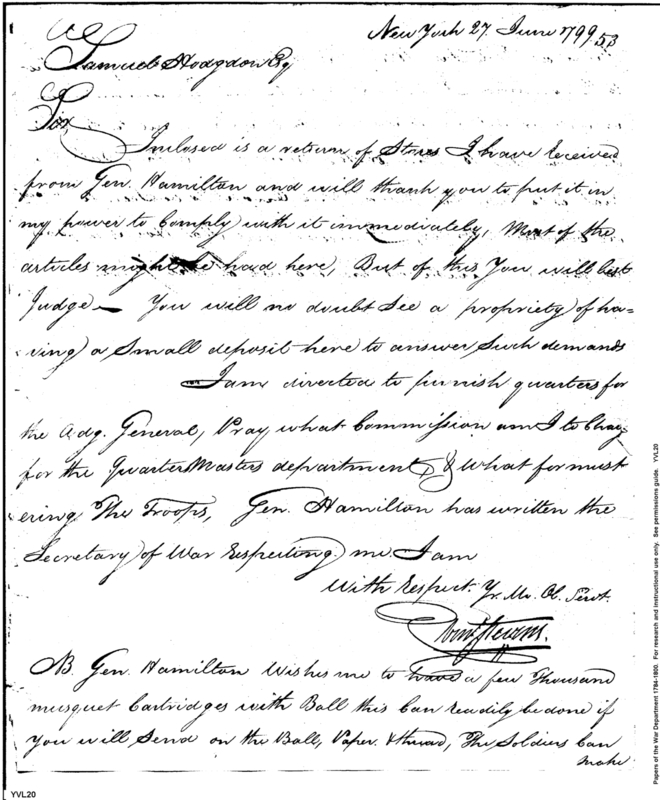 New York 27. June 1799
53
Samuel Hodgdon Esq
Sir,
Inclosed is a return of Stores I have received
from Gen. Hamilton and will thank you to put it in
my power to Comply with it immediately, Most of the
articles might be had here, But of this You will best
Judge — You will no doubt See a propriety of ha=
ving a Small deposit here to answer Such demands
I am directed to furnish quarters for
the Adj. General, Pray what Commission am I to Charge
for the QuarterMasters department, & What for must
ering The Troops, Gen. Hamilton has written the
Secretary of War Respecting me I am
With Respect. Yr. Mo. Ob. Servt.
Eben Stevens.
NB. Gen. Hamilton Wishes me to have a few Thousand
musquet Cartridges with Ball this Can readily be done if
You will Send on the Ball, Paper. & thread, The Soldiers Can
make
Papers of the War Department 1784-1800. For research and instructional use only. See permissions guide. YVL20
YVL20